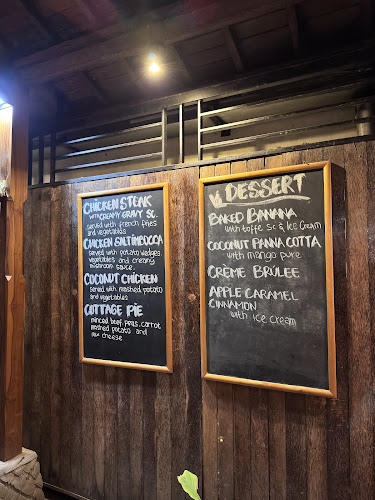 CHICKEN STEAK
WITH CREAMY GRAVY SC.
served with french fries
and vegetables
CHICKEN SALTIMBOCCA
served with potato wedges,
vegetables and creamy
mushroom sauce.
COCONUT CHICKEN
served with mashed potato
and vegetables
COTTAGE PIE
minced beef, peas, carrot
mashed potato and
mix cheese
DESSERT
BAKED BANANA
with toffe Sc & Ice Cream
COCONUT PANNA COTTA
with mango pure
CRÈME BRÛLEE
APPLE CARAMEL
CINNAMON
with ice cream